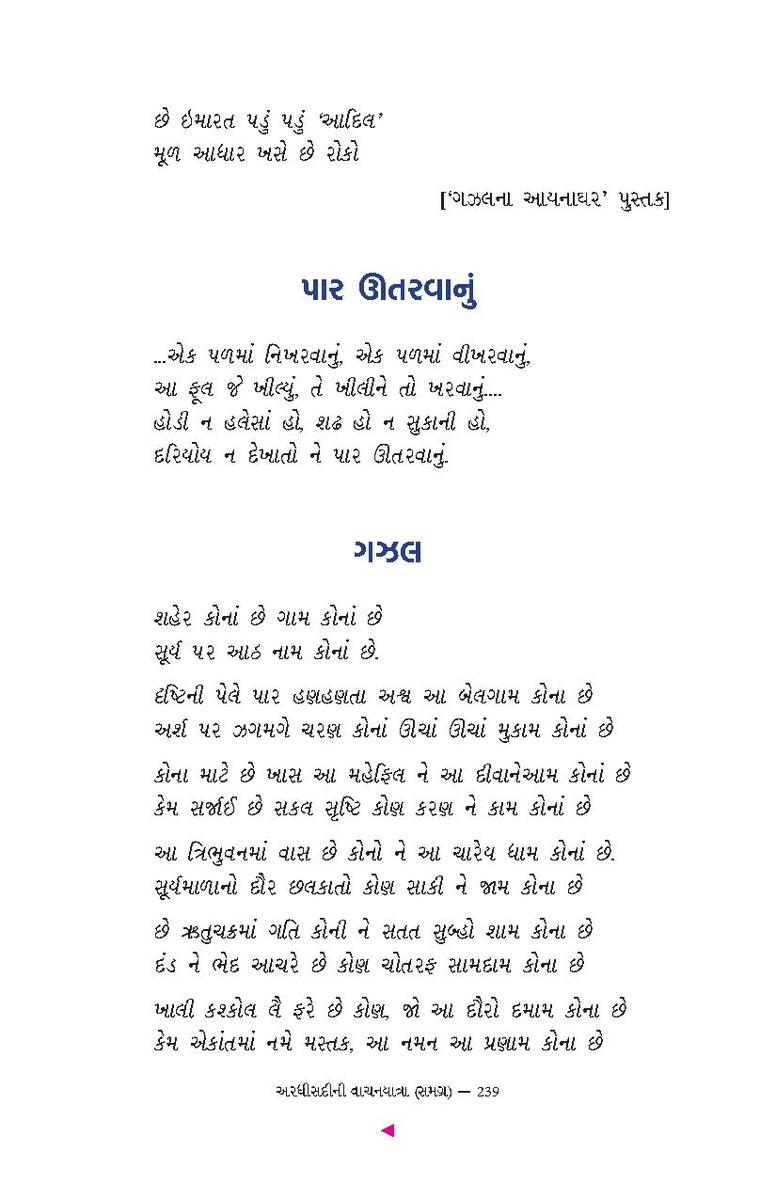 છે ઇમારત પડું પડું ‘આદિલ’
મૂળ આધાર ખસે છે રોકો
[‘ગઝલના આયનાઘર’ પુસ્તક]
પાર ઊતરવાનું
...એક પળમાં નિખરવાનું, એક પળમાં વીખરવાનું,
આ ફૂલ જે ખીલ્યું, તે ખીલીને તો ખરવાનું....
હોડી ન હલેસાં હો, શઢ હો ન સુકાની હો,
દરિયોય ન દેખાતો ને પાર ઊતરવાનું.
ગઝલ
શહેર કોનાં છે ગામ કોનાં છે
સૂર્ય પર આઠ નામ કોનાં છે.
દૃષ્ટિની પેલે પાર હણહણતા અશ્વ આ બેલગામ કોના છે
અર્શ પર ઝગમગે ચરણ કોનાં ઊંચાં ઊંચાં મુકામ કોનાં છે
કોના માટે છે ખાસ આ મહેફિલ ને આ દીવાનેઆમ કોનાં છે
કેમ સર્જાઈ છે સકલ સૃષ્ટિ કોણ કરણ ને કામ કોનાં છે
આ ત્રિભુવનમાં વાસ છે કોનો ને આ ચારેય ધામ કોનાં છે.
સૂર્યમાળાનો દૌર છલકાતો કોણ સાકી ને જામ કોના છે
છે ઋતુચક્રમાં ગતિ કોની ને સતત સુબ્હો શામ કોના છે
દંડ ને ભેદ આચરે છે કોણ ચોતરફ સામદામ કોના છે
ખાલી કશ્કોલ લૈ ફરે છે કોણ, જો આ દૌરો દમામ કોના છે
કેમ એકાંતમાં નમે મસ્તક, આ નમન આ પ્રણામ કોના છે
અરધીસદીની વાચનયાત્રા (સમગ્ર) — 239